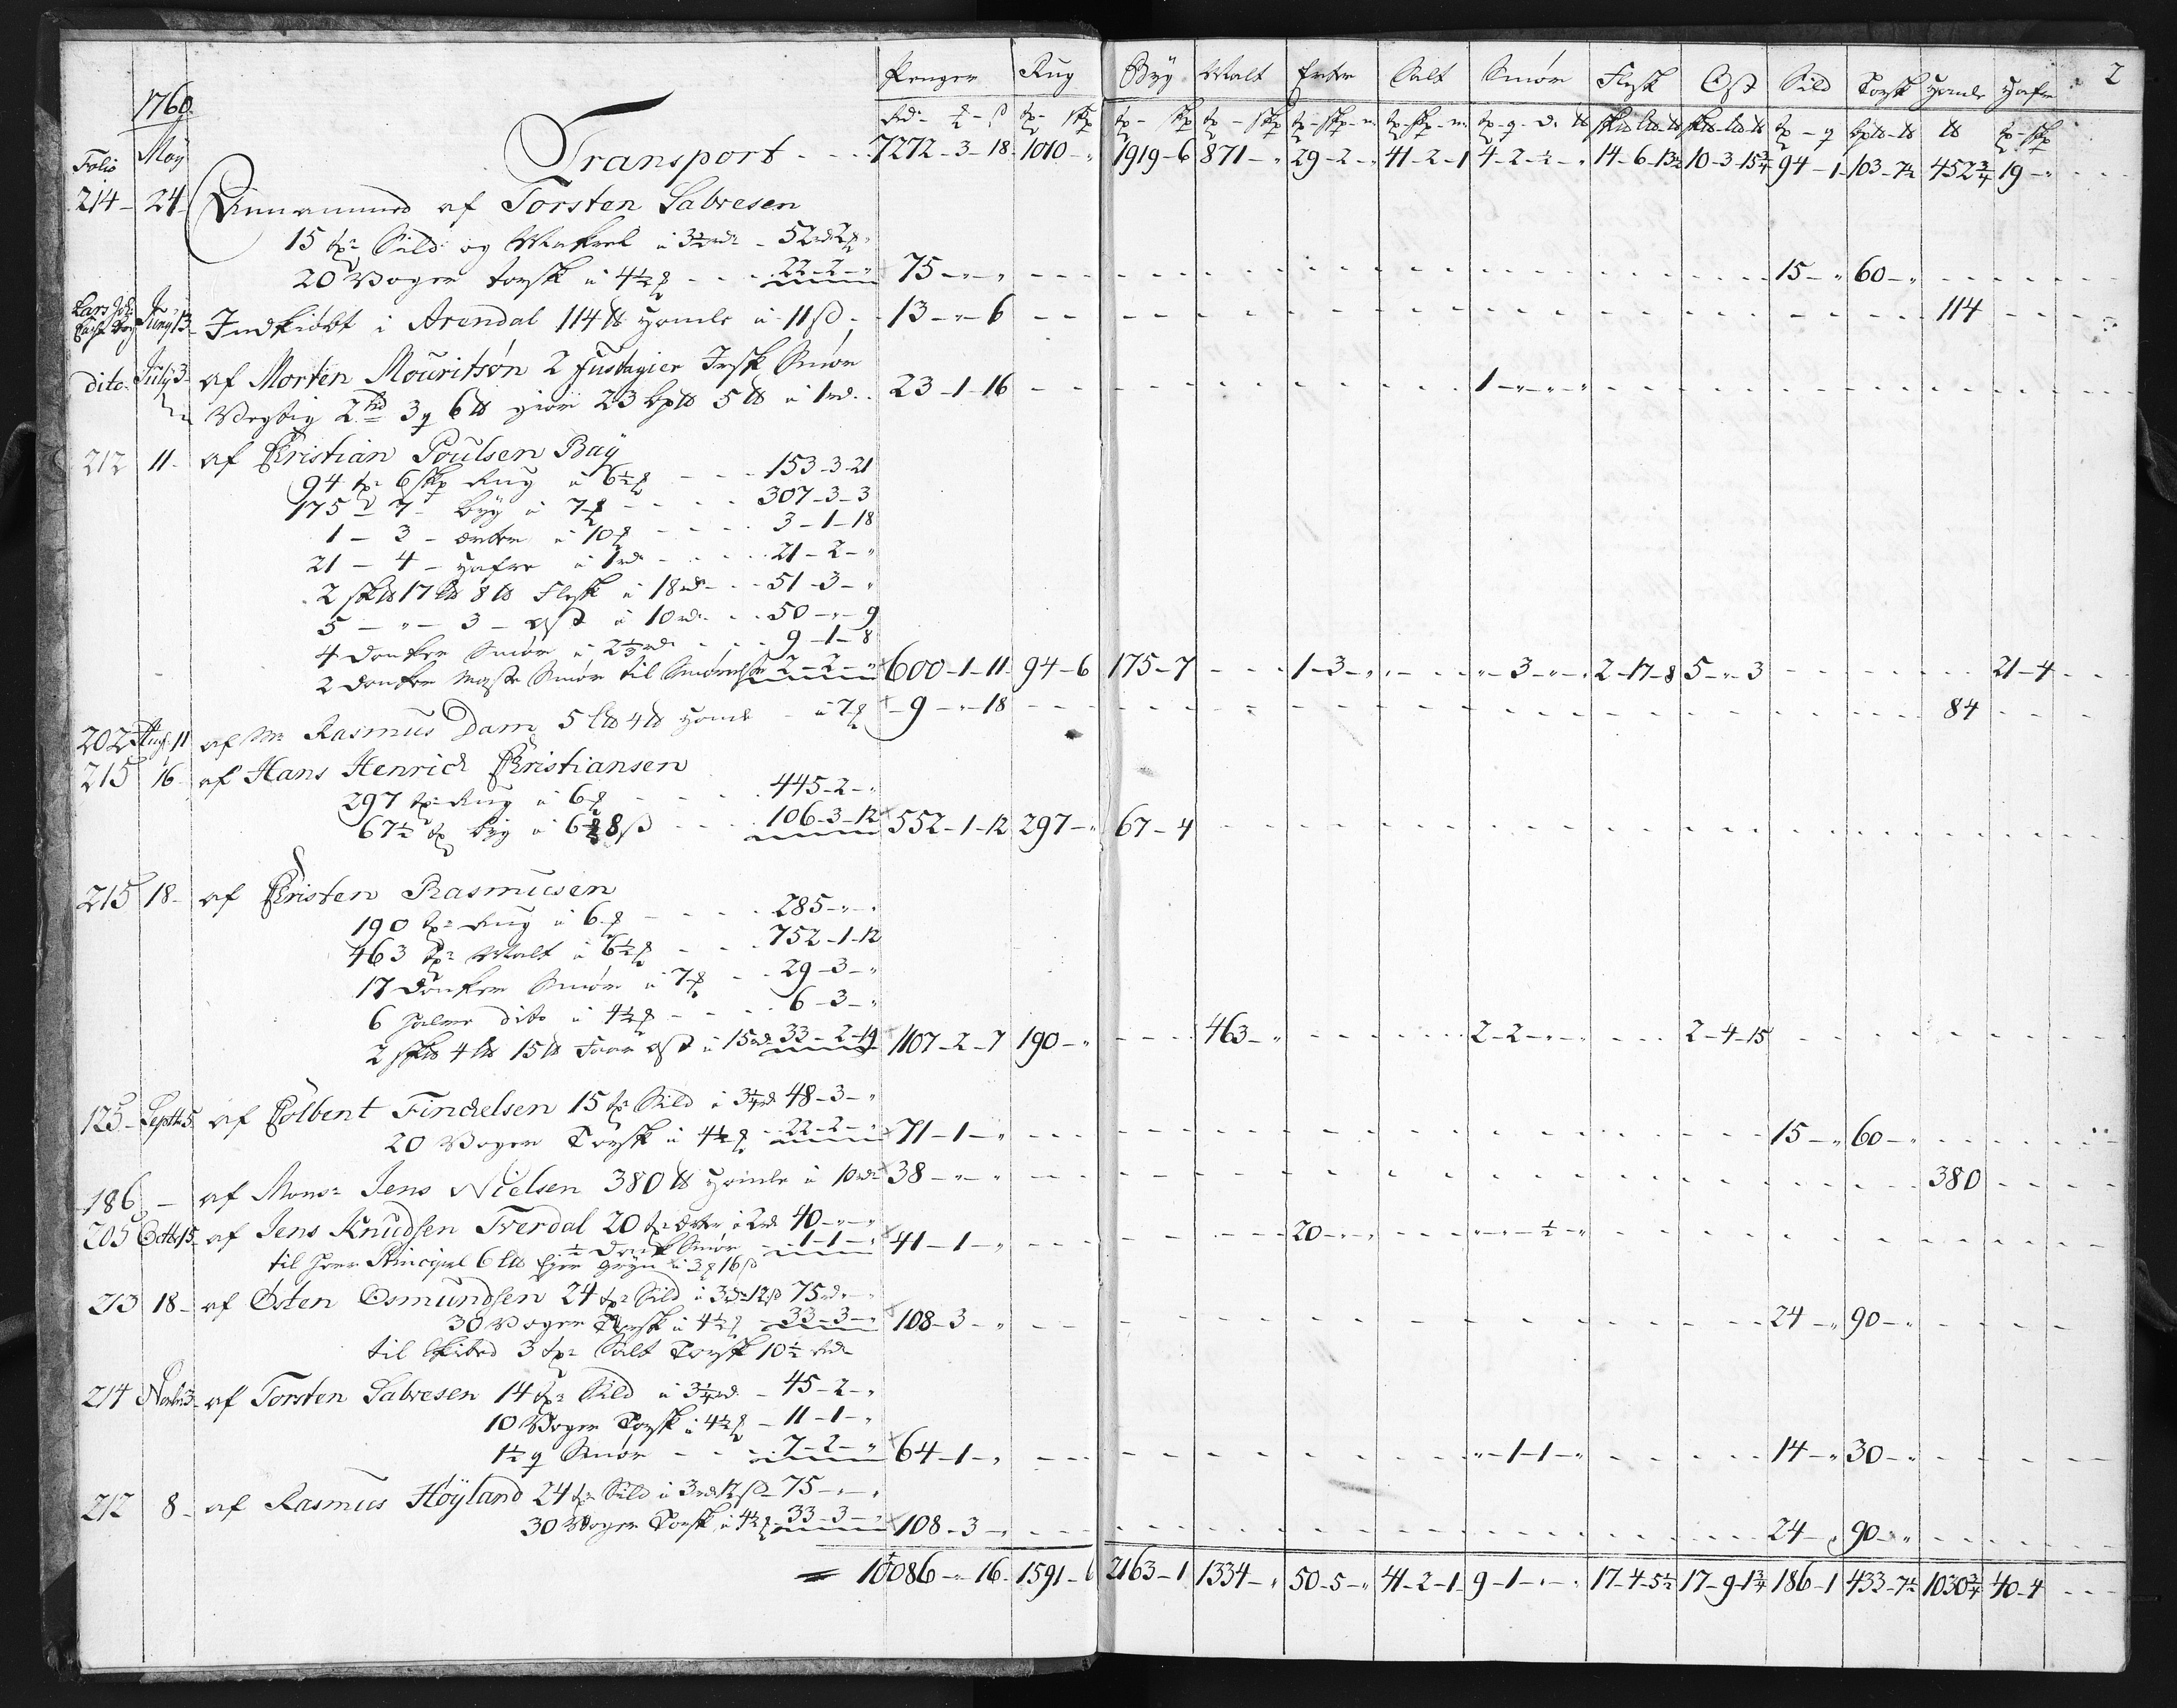 Penger Rug Byg Malt Erter Salt Smør Flesk Ost Sild Torsk Homle Hafre 2
1760
Folio Maÿ Transport - - - 7272-3-18 1010-" 1919-6 871-" 29-2-" 41-2-1 4-2-½-" 14-6-13½ 10-3-15¾ 94-1 103-7½ 452¾ 19-"
214 24 Annammed af Torsten Sabresen
15 tr Sild og Makrel a 3½ rd - 52 rd 2
20 Voger torsk a 4½ - - 22-2-" 75-"-" 15-" 60-"
Juny 13 Indkiøbt i Arendal 114 Homle a 11 ß - 13-"-6 114
dito July 3 af Morten Mouritsøn 2 fustagier Irsk Smør
Vegtig 2 3 6 giør 23 5 a 1 rd 23-1-16 1-"-"-"
212 11 af Christian Poulsen Baÿ
94 tr 6 skp Rug a 6½ - - 153-3-21
175 - 7 - byg a 7 - - 307-3-3
1 - 3 - erter a 10 - - 3-1-18
21 - 4 - Hafre a 1 rd - - 21-2-"
2 17 8 Flesk a 18 rd - - 51-3-"
5 - " - 3 - ost a 10 rd - - 50-"-9
4 Smør a 2⅓ rd - - 9-1-8
2 Smør til 2-2-" 600-1-11 94-6 175-7 1-3-" "-3-"-" 2-17-8 5-"-3 21-4
202 Aug 11 af Mr Rasmus Dam 5 4 Homle - a 7 9-"-18 84
215 16 af Hans Henrich Christiansen
297 tr Rug a 6 - - 445-2-"
67½ tr byg a 6 8 ß - - 106-3-12 552-1-12 297-" 67-4
215 18 af Christen Rasmusen
190 tr Rug a 6 - - 285-"-"
463 tr Malt a 6½ - - 752-1-12
17 Smør a 7 - - 29-3-"
6 halve dito a 4½ - - 6-3-"
2 4 15 Faar ost a 15 rd 33-2-19 1107-2-7 190-" 463-" 2-2-"-" 2-4-15
125 Septb 5 af Colbent Finchelsen 15 tr Sild a 3¼ rd 48-3-"
20 Voger Torsk a 4½ - 22-2-" 71-1-" 15-" 60-"
186 - af Monsr Jens Nielsen 380 Homle a 10 rd 38-"-" 380
205 Octbr 15 af Jens Knudsen Tverdal 20 tr erter a 2 rd 40-"-"
½ Smør - 1-1-" 41-1-" 20-"-" "-"-½-"
til 6 Gryn a 3 16 ß
213 18 af Østen Osmundsen 24 tr Sild a 3 rd 12 ß 75 rd
30 Voger Torsk a 4½ 33-3-" 108-3-" 24-" 90-"
til 3 tr Salt Torsk 10½ rd
214 Novbr 3 af Torsten Sabresen 14 tr Sild a 3¼ rd - 45-2-"
10 Voger Torsk a 4½ - 11-1-"
1½ Smør - - 7-2-" 64-1-" "-1-1-" 14-" 30-"
212 8 af Rasmus Høyland 24 tr Sild a 3 rd 12 ß - 75-"-"
30 Voger Torsk a 4½ - 33-3-" 108-3-" 24-" 90-"
10086-"-16 1591-6 2163-1 1334-" 50-5-" 41-2-1 9-1-"-" 17-4-5½ 17-9-1¾ 186-1 433-7½ 1030¾ 40-4